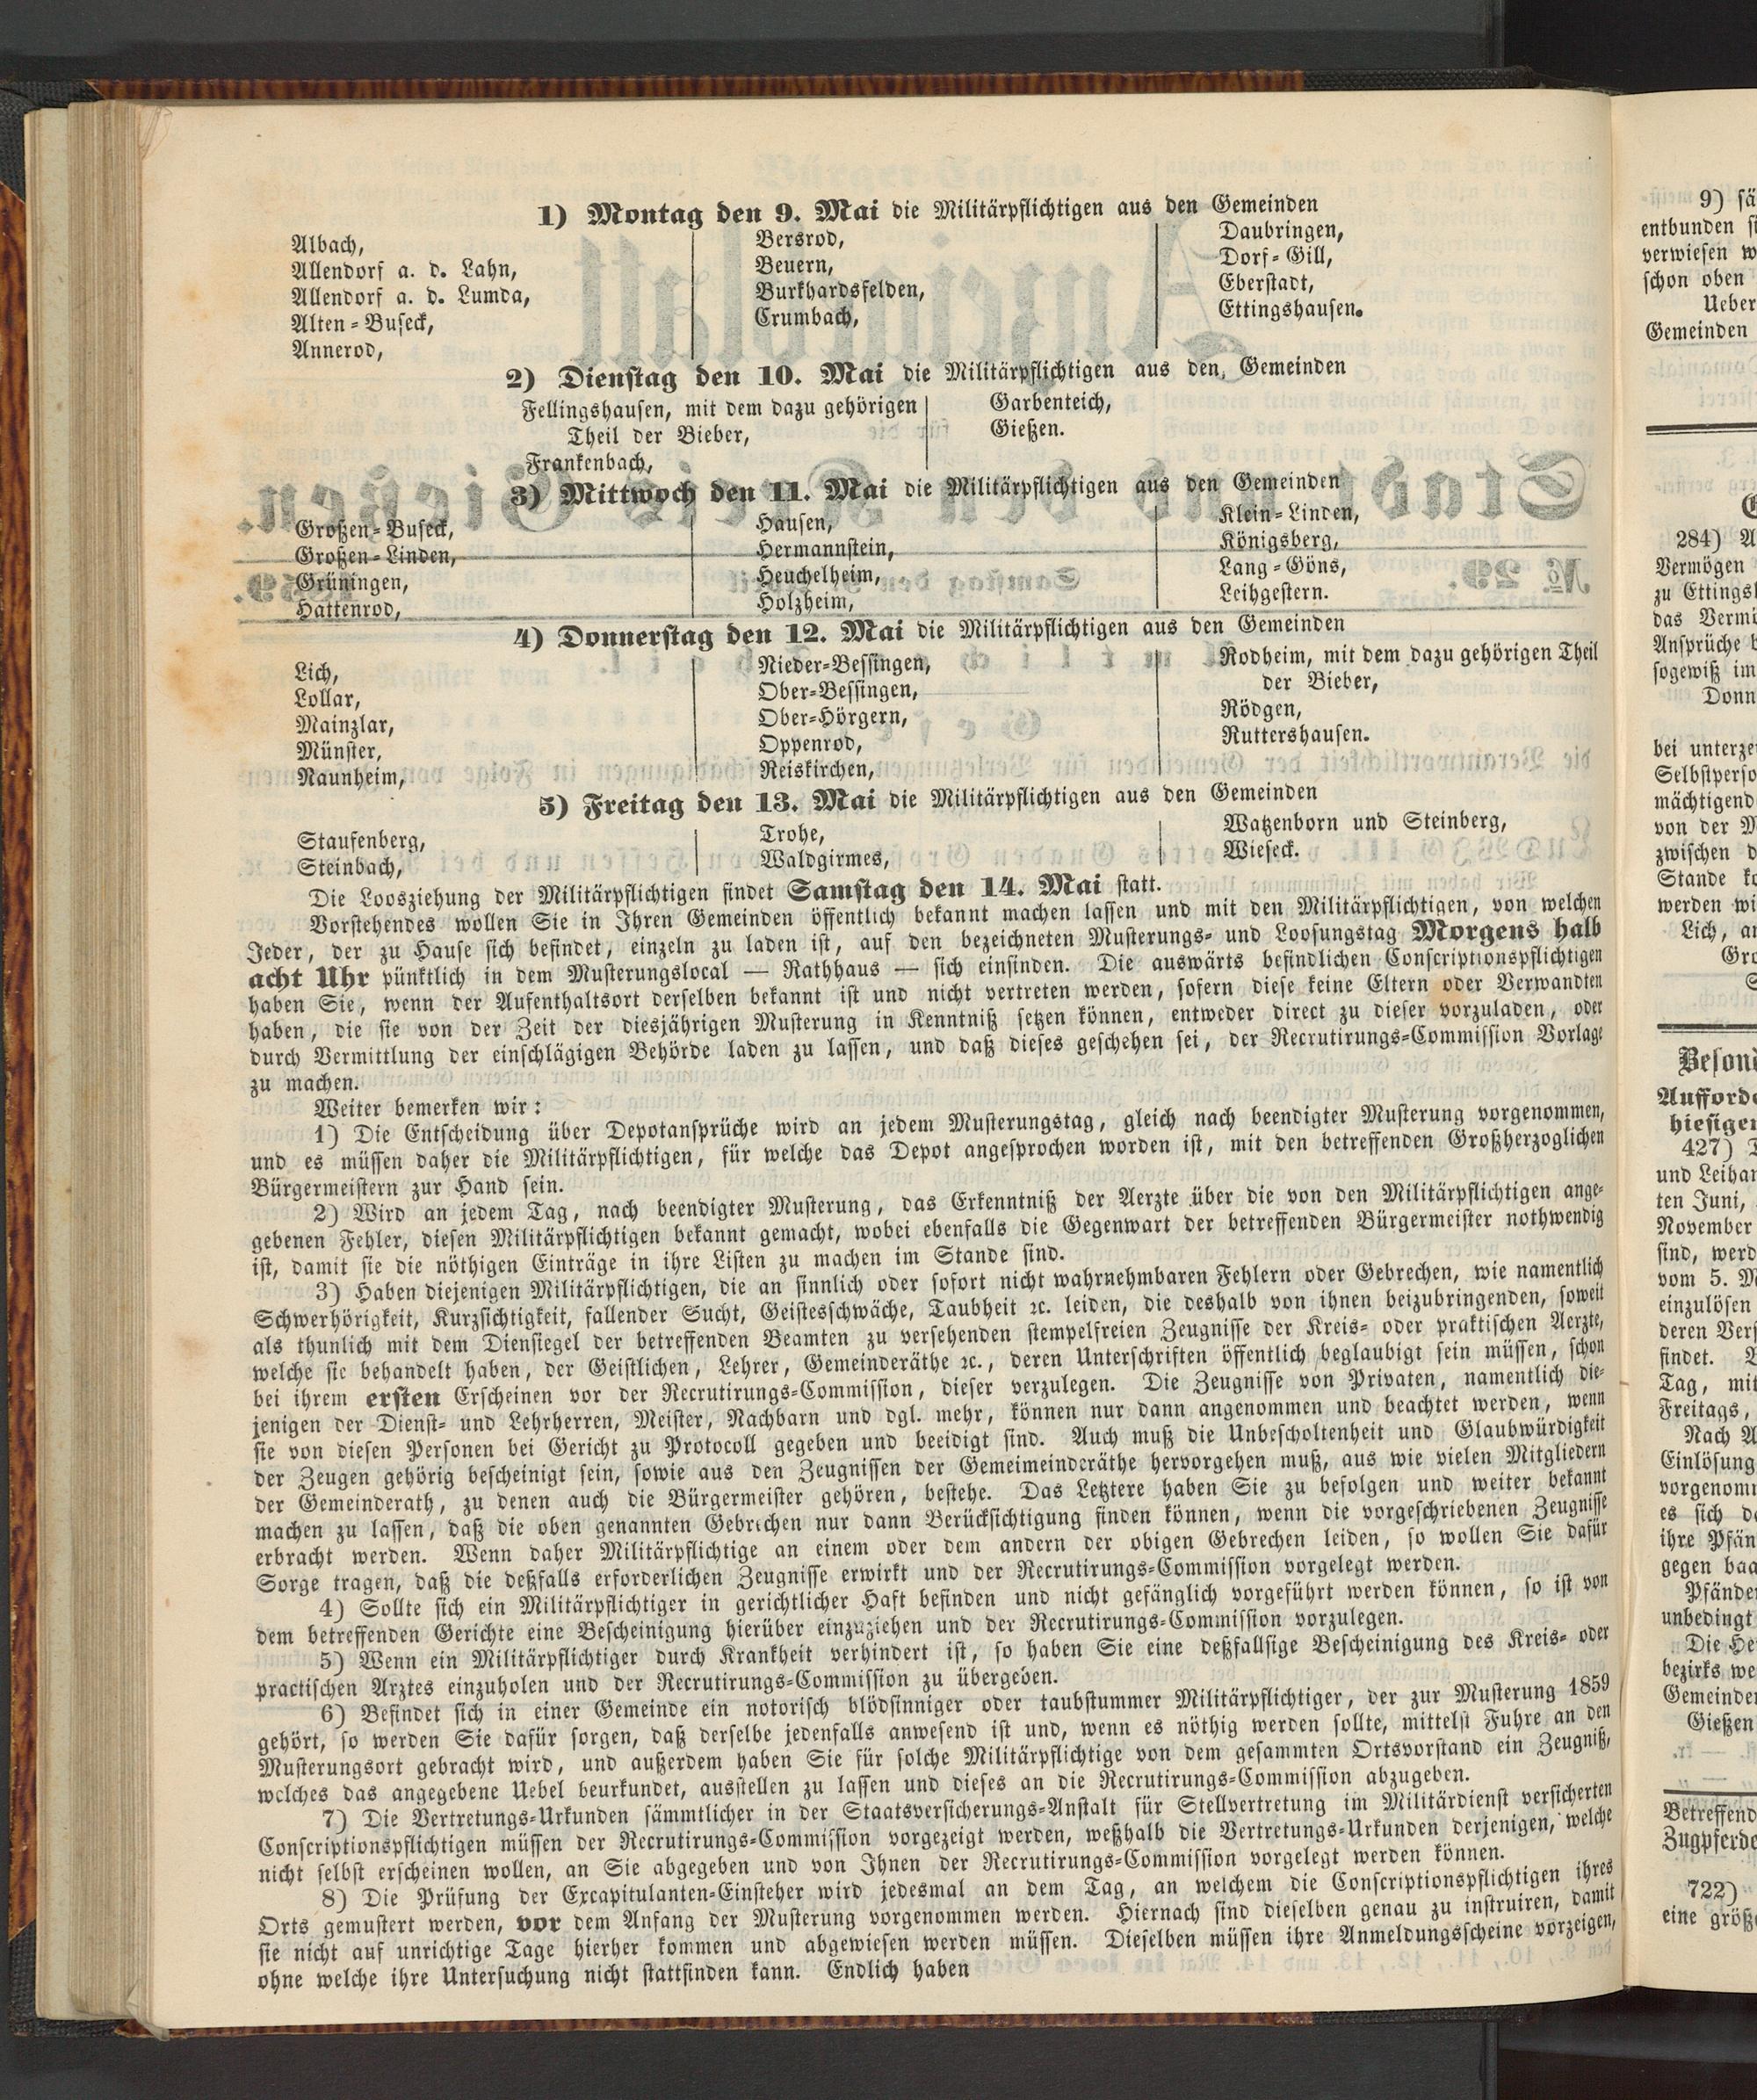 1) Montag den 9. Mai die Militärpflichtigen aus den Gemeinden
Albach,
Allendorf a. d. Lahn,
Allendorf a. d. Lumda,
Alten-Buseck,
Annerod,
Bersrod,
Beuern,
Burkhardsfelden,
Crumbach,
Daubringen,
Dorf-Gill,
Eberstadt,
Ettingshausen.
2) Dienstag den 10. Mai die Militärpflichtigen aus den Gemeinden
Fellingshausen, mit dem dazu gehörigen
Theil der Bieber,
Frankenbach,
Garbenteich,
Gießen.
3) Mittwoch den 11. Mai die Militärpflichtigen aus den Gemeinden
Großen-Buseck,
Großen-Linden,
Grüningen,
Hattenrod,
Hausen,
Hermannstein,
Heuchelheim,
Holzheim,
Klein-Linden,
Königsberg,
Lang-Göns,
Leihgestern.
4) Donnerstag den 12. Mai die Militärpflichtigen aus den Gemeinden
Lich,
Lollar,
Mainzlar,
Münster,
Naunheim,
Nieder-Bessingen,
Ober-Bessingen,
Ober-Hörgern,
Oppenrod,
Reiskirchen,
Rodheim, mit dem dazu gehörigen Theil
der Bieber,
Rödgen,
Ruttershausen.
5) Freitag den 13. Mai die Militärpflichtigen aus den Gemeinden
Staufenberg,
Steinbach,
Trohe,
Waldgirmes,
Watzenborn und Steinberg,
Wieseck.
Die Loosziehung der Militärpflichtigen findet Samstag den 14. Mai statt.
Vorstehendes wollen Sie in Ihren Gemeinden öffentlich bekannt machen lassen und mit den Militärpflichtigen, von welchen
Jeder, der zu Hause sich befindet, einzeln zu laden ist, auf den bezeichneten Musterungs- und Loosungstag Morgens halb
acht Uhr pünktlich in dem Musterungslocal — Rathhaus — sich einfinden. Die auswärts befindlichen Conscriptionspflichtigen
haben Sie, wenn der Aufenthaltsort derselben bekannt ist und nicht vertreten werden, sofern diese keine Eltern oder Verwandten
haben, die sie von der Zeit der diesjährigen Musterung in Kenntniß setzen können, entweder direct zu dieser vorzuladen, oder
durch Vermittlung der einschlägigen Behörde laden zu lassen, und daß dieses geschehen sei, der Recrutirungs-Commission Vorlage
zu machen.
Weiter bemerken wir:
1) Die Entscheidung über Depotansprüche wird an jedem Musterungstag, gleich nach beendigter Musterung vorgenommen,
und es müssen daher die Militärpflichtigen, für welche das Depot angesprochen worden ist, mit den betreffenden Großherzoglichen
Bürgermeistern zur Hand sein.
2) Wird an jedem Tag, nach beendigter Musterung, das Erkenntniß der Aerzte über die von den Militärpflichtigen ange-
gebenen Fehler, diesen Militärpflichtigen bekannt gemacht, wobei ebenfalls die Gegenwart der betreffenden Bürgermeister nothwendig
ist, damit sie die nöthigen Einträge in ihre Listen zu machen im Stande sind.
3) Haben diejenigen Militärpflichtigen, die an sinnlich oder sofort nicht wahrnehmbaren Fehlern oder Gebrechen, wie namentlich
Schwerhörigkeit, Kurzsichtigkeit, fallender Sucht, Geistesschwäche, Taubheit ꝛc. leiden, die deshalb von ihnen beizubringenden, soweit
als thunlich mit dem Diensiegel der betreffenden Beamten zu versehenden stempelfreien Zeugnisse der Kreis- oder praktischen Aerzte,
welche sie behandelt haben, der Geistlichen, Lehrer, Gemeinderäthe ꝛc., deren Unterschriften öffentlich beglaubigt sein müssen, schon
bei ihrem ersten Erscheinen vor der Recrutirungs-Commission, dieser verzulegen. Die Zeugnisse von Privaten, namentlich die-
jenigen der Dienst- und Lehrherren, Meister, Nachbarn und dgl. mehr, können nur dann angenommen und beachtet werden, wenn
sie von diesen Personen bei Gericht zu Protocoll gegeben und beeidigt sind. Auch muß die Unbescholtenheit und Glaubwürdigkeit
der Zeugen gehörig bescheinigt sein, sowie aus den Zeugnissen der Gemeimeinderäthe hervorgehen muß, aus wie vielen Mitgliedern
der Gemeinderath, zu denen auch die Bürgermeister gehören, bestehe. Das Letztere haben Sie zu befolgen und weiter bekannt
machen zu lassen, daß die oben genannten Gebrechen nur dann Berücksichtigung finden können, wenn die vorgeschriebenen Zeugnisse
erbracht werden. Wenn daher Militärpflichtige an einem oder dem andern der obigen Gebrechen leiden, so wollen Sie dafür
Sorge tragen, daß die deßfalls erforderlichen Zeugnisse erwirkt und der Recrutirungs-Commission vorgelegt werden.
4) Sollte sich ein Militärpflichtiger in gerichtlicher Haft befinden und nicht gefänglich vorgeführt werden können, so ist von
dem betreffenden Gerichte eine Bescheinigung hierüber einzuziehen und der Recrutirungs-Commission vorzulegen.
5) Wenn ein Militärpflichtiger durch Krankheit verhindert ist, so haben Sie eine deßfallsige Bescheinigung des Kreis- oder
practischen Arztes einzuholen und der Recrutirungs-Commission zu übergeben.
6) Befindet sich in einer Gemeinde ein notorisch blödsinniger oder taubstummer Militärpflichtiger, der zur Musterung 1859
gehört, so werden Sie dafür sorgen, daß derselbe jedenfalls anwesend ist und, wenn es nöthig werden sollte, mittelst Fuhre an den
Musterungsort gebracht wird, und außerdem haben Sie für solche Militärpflichtige von dem gesammten Ortsvorstand ein Zeugniß,
welches das angegebene Uebel beurkundet, ausstellen zu lassen und dieses an die Recrutirungs-Commission abzugeben.
7) Die Vertretungs-Urkunden sämmtlicher in der Staatsversicherungs-Anstalt für Stellvertretung im Militärdienst versicherten
Conscriptionspflichtigen müssen der Recrutirungs-Commission vorgezeigt werden, weßhalb die Vertretungs-Urkunden derjenigen, welche
nicht selbst erscheinen wollen, an Sie abgegeben und von Ihnen der Recrutirungs-Commission vorgelegt werden können.
8) Die Prüfung der Excapitulanten-Einsteher wird jedesmal an dem Tag, an welchem die Conscriptionspflichtigen ihres
Orts gemustert werden, vor dem Anfang der Musterung vorgenommen werden. Hiernach sind dieselben genau zu instruiren, damit
sie nicht auf unrichtige Tage hierher kommen und abgewiesen werden müssen. Dieselben müssen ihre Anmeldungsscheine vorzeigen,
ohne welche ihre Untersuchung nicht stattfinden kann. Endlich haben
9) sä
entbunden s
verwiesen w
schon oben
Ueber
Gemeinden
284) A
Vermögen
zu Ettings
das Vermö
Ansprüche
sogewiß im
Donn
bei unterze
Selbstperso
mächtigend
von der
zwischen
Stande
werden wi
Lich,
Gro
Beson
Aufford
hiesige
427)
und Leihan
ten Juni,
November
sind, werd
vom 5.
einzulösen
deren Vers
findet.
Tag, mit
Freitags,
Nach
Einlösung
vorgenom
es sich
ihre Pfän
gegen baa
Pfände
unbedingt
Die
bezirks we
Gemeinde
Gießen
Betreffend
Zugpferde
722)
eine größ